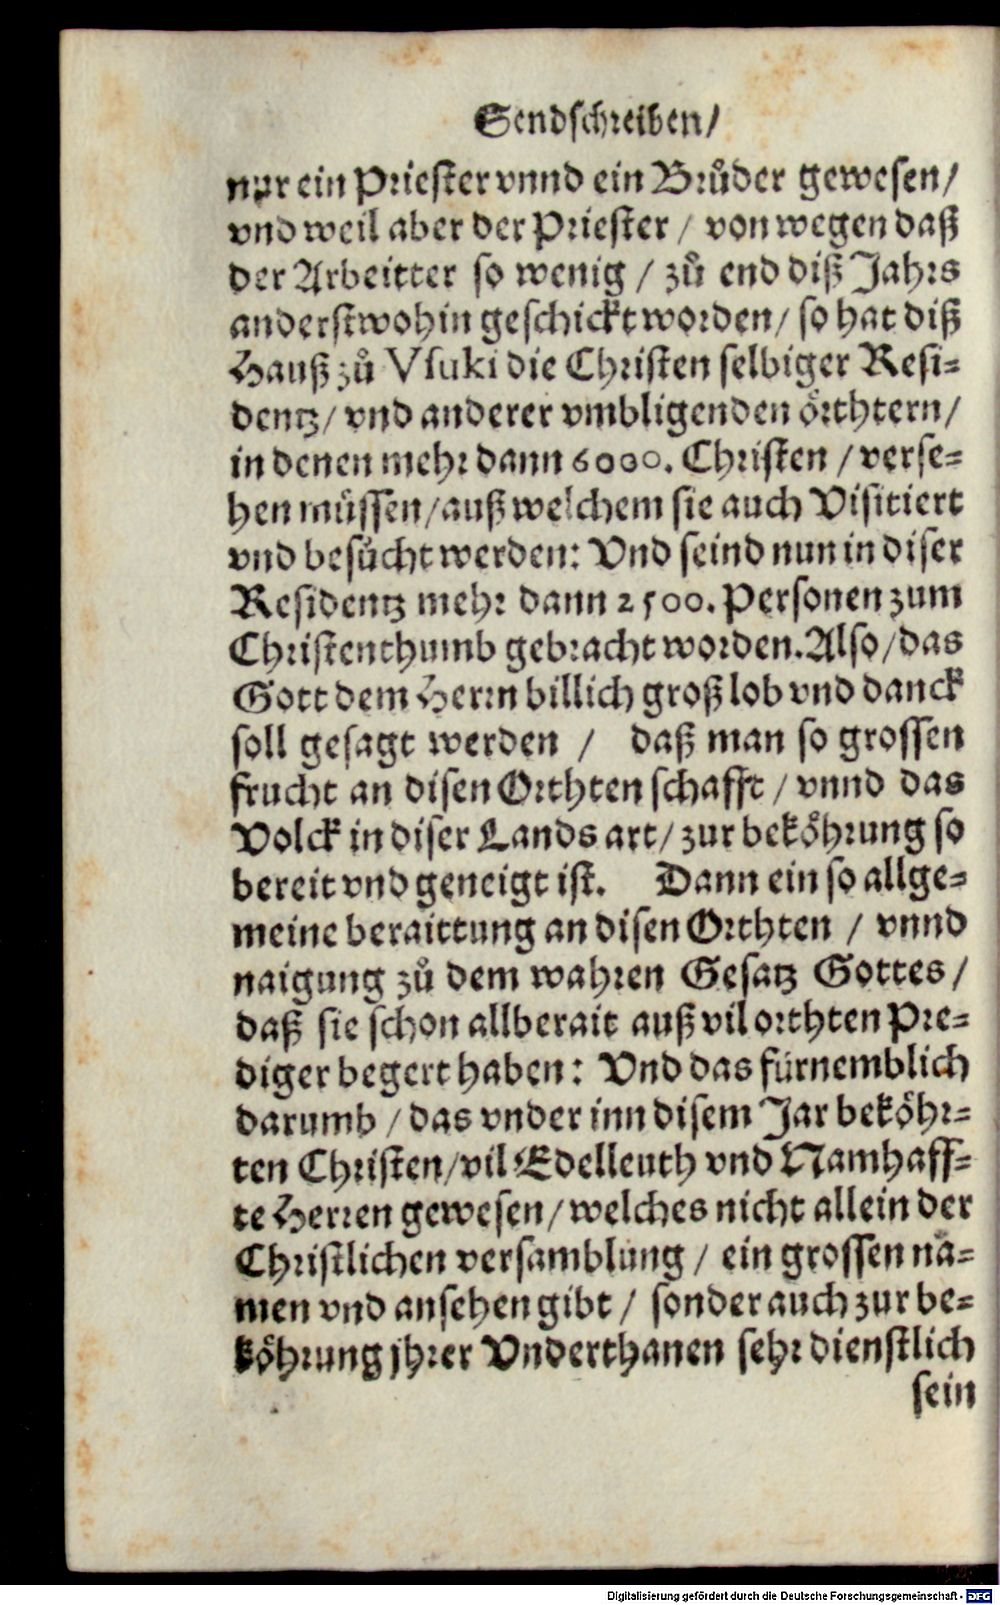 Sendschreiben/
nur ein Priester vnnd ein Brůder gewesen/
vnd weil aber der Priester / von wegen daß
der Arbeitter so wenig / zů end diß Jahrs
anderstwohin geschickt worden/ so hat diß
Hauß zů Vsuki die Christen selbiger Resi-
dentz/ vnd anderer vmbligenden örthtern/
in denen mehr dann 6000. Christen / verse-
hen müssen/auß welchem sie auch Visitiert
vnd besůcht werden: Vnd seind nun in diser
Residentz mehr dann 2500. Personen zum
Christenthumb gebracht worden. Also/das
Gott dem Herrn billich groß lob vnd danck
soll gesagt werden / daß man so grossen
frucht an disen Orthten schafft / vnnd das
Volck in diser Lands art/ zur beköhrung so
bereit vnd geneigt ist. Dann ein so allge-
meine beraittung an disen Orthten / vnnd
naigung zů dem wahren Gesatz Gottes/
daß sie schon allberait auß vil orthten Pre-
diger begert haben: Vnd das fürnemblich
darumb / das vnder inn disem Jar beköhr-
ten Christen/vil Edelleuth vnd Namhaff-
te Herren gewesen/welches nicht allein der
Christlichen versamblung / ein grossen na-
men vnd ansehen gibt / sonder auch zur be-
köhrung jhrer Vnderthanen sehr dienstlich
sein
Digitalisierung gefördert durch die Deutsche Forschungsgemeinschaft - DFG